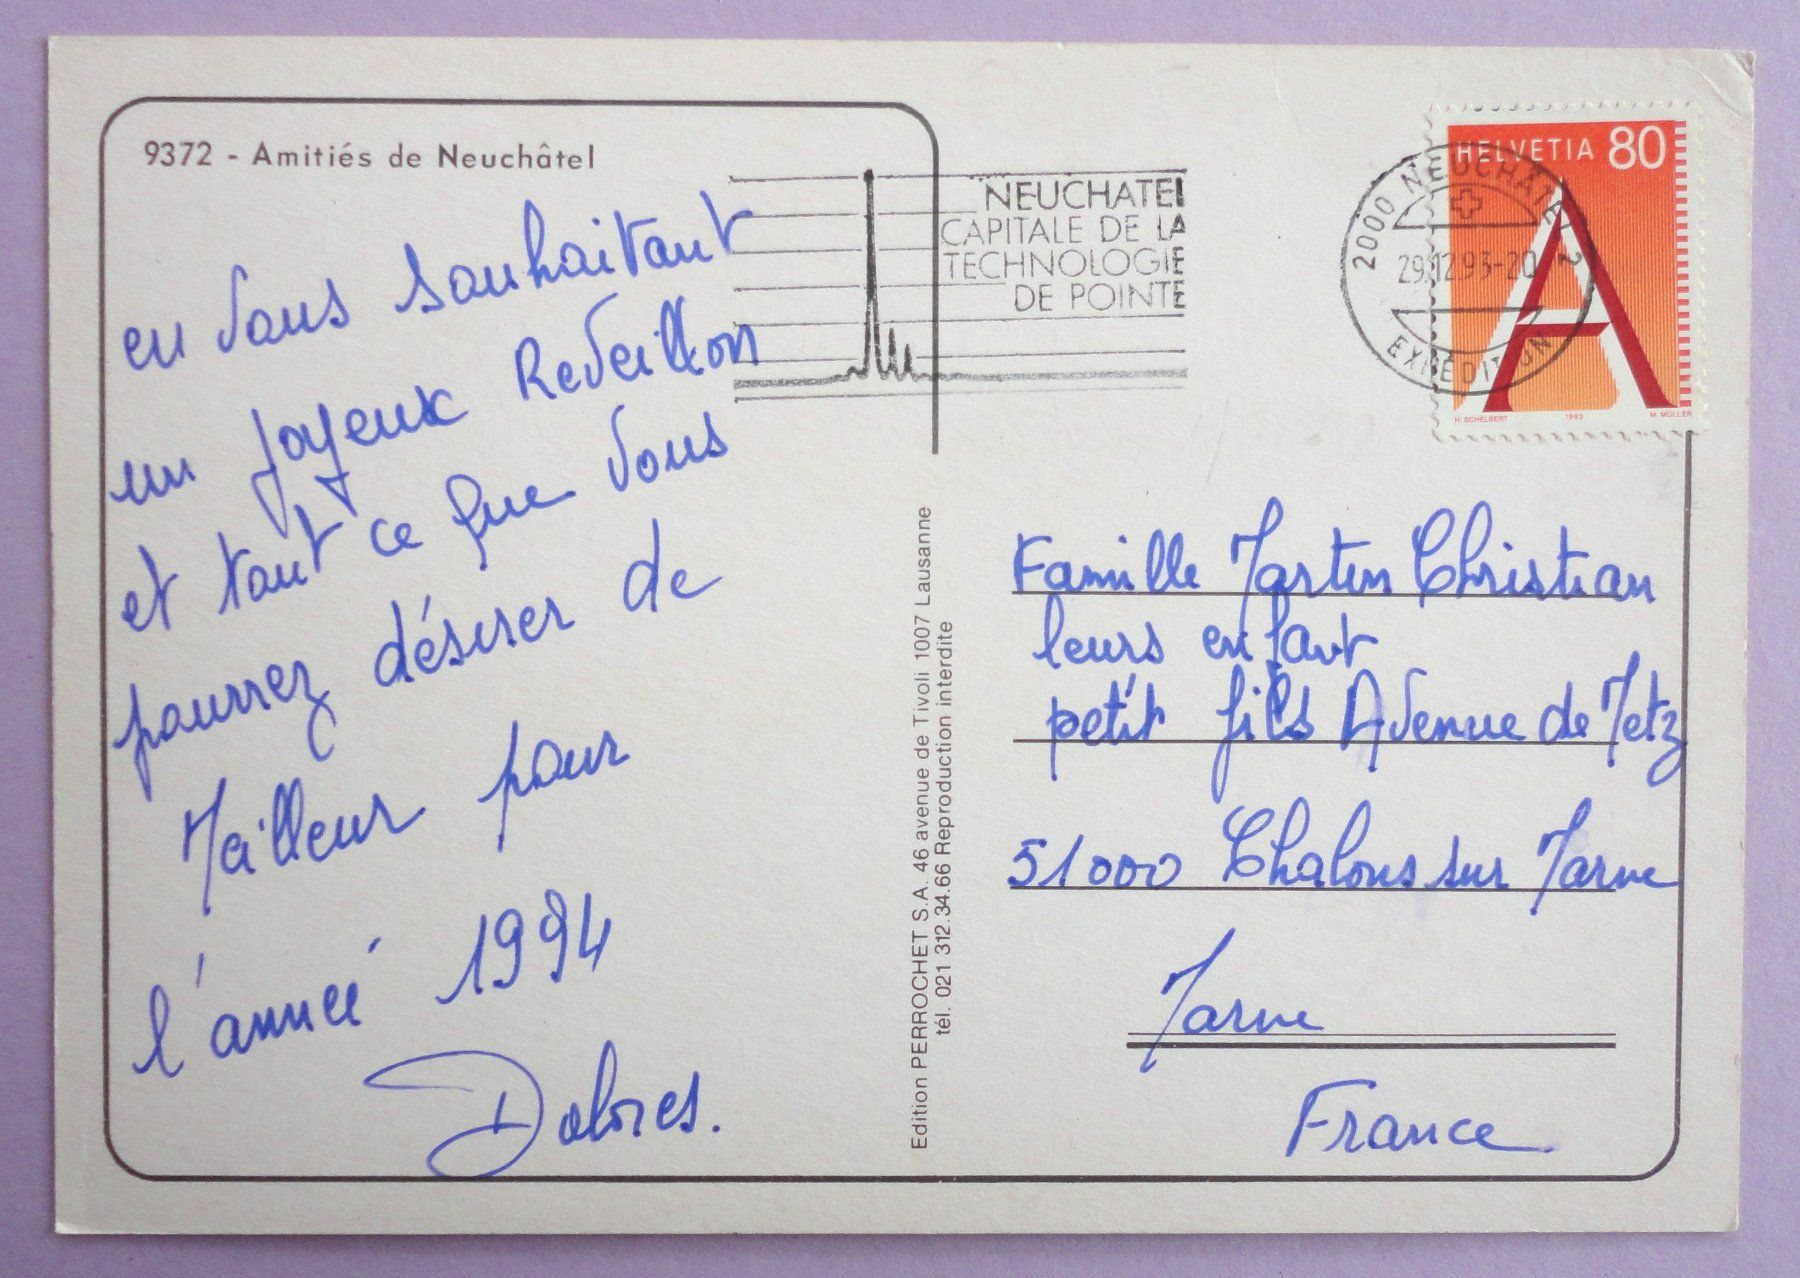 9372 - Amitiés de Neuchâtel
en vous souhaitant
un joyeux Reveillon
et tout ce que vous
pourrez désirer de
Meilleur pour
l'année 1994
Dolores.
NEUCHATEL
CAPITALE DE LA
TECHNOLOGIE
DE POINTE
HELVETIA 80
A
H. SCHELBERT 1993 M. MÜLLER
2000 NEUCHÂTEL 2
29.12.93-20
EXPÉDITION
Edition PERROCHET S.A. 46 avenue de Tivoli 1007 Lausanne
tél. 021 312.34.66 Reproduction interdite
Famille Martin Christian
leurs enfant
petit fils Avenue de Metz
51000 Chalons sur Marne
Marne
France